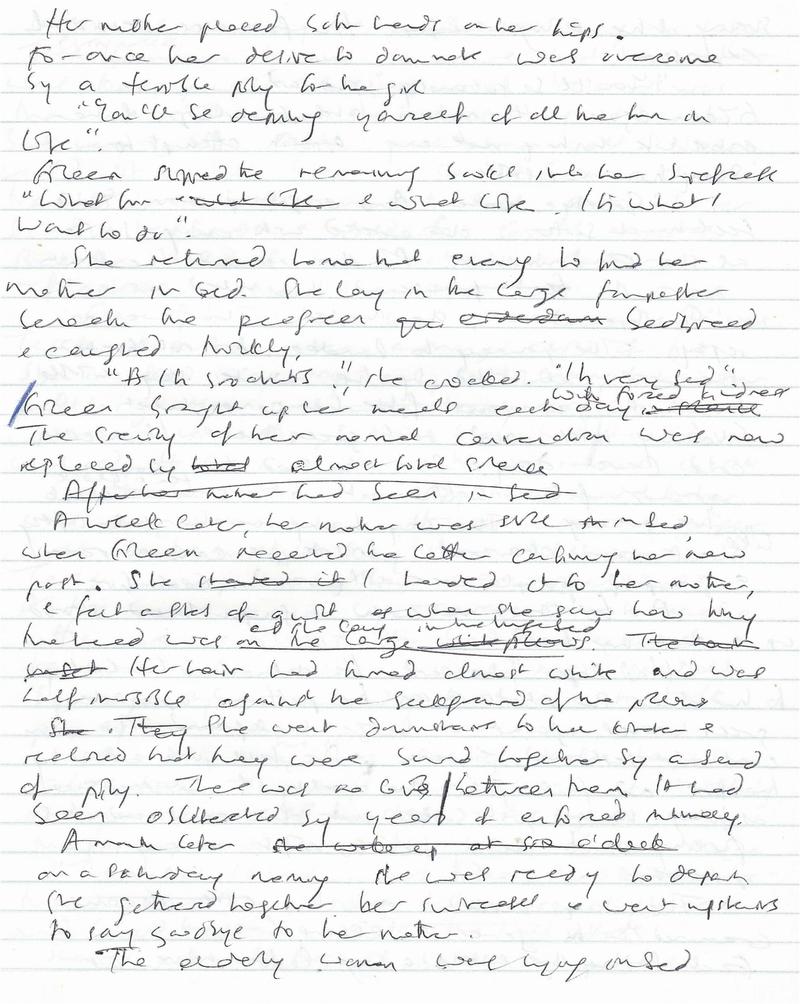 Her mother placed both hands on her hips.
For once her desire to dominate was overcome
by a terrible pity for the girl
"You'll be denying yourself of all the fun in
life".
Eileen slipped the remaining books into her suitcase
"What fun & what life. It's what I
want to do".
She returned home that evening to find her
mother in bed. She lay in the large
beneath the bedspread
& coughed
"It's bronchitis", she croaked. "I'm very bad"
Eileen brought up her meals each day with forced kindness
The of her normal conversation was now
replaced by almost total silence
After her mother had been in bed
A week later, her mother was still in bed,
when Eileen received the letter confirming her new
post. She handed it to her mother,
& felt a of guilt as when she saw how tiny
as she lay in the large bed
the head was on the large white pillows.
Her hair had turned almost white and was
half invisible against the background of the pillows
She They She went downstairs to the kitchen &
realised that they were bound together by a bend
of pity. There was no love between them. It had
been obliterated by years of enforced intimacy.
A month later she woke up at six o'clock
on a Saturday morning she was ready to depart
She gathered together her suitcases & went upstairs
to say goodbye to her mother.
The elderly woman was lying on bed